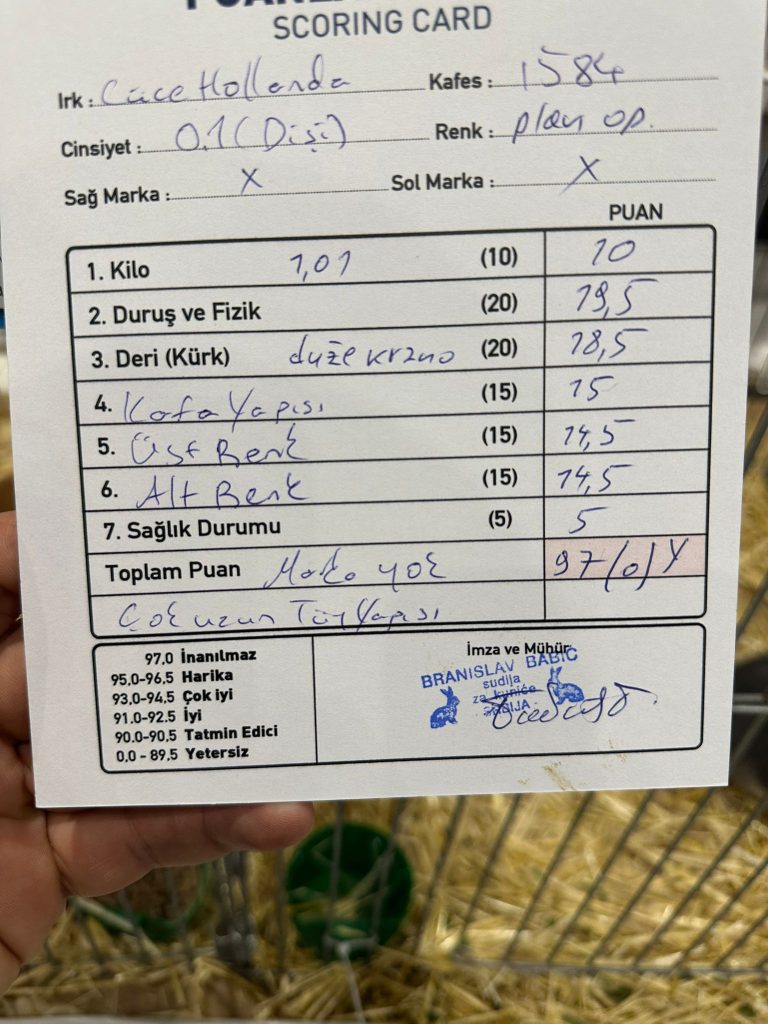 SCORING CARD
Irk : Cüce Hollanda Kafes : 1584
Cinsiyet : 0.1 (Dişi) Renk : plav op.
Sağ Marka : X Sol Marka : X
PUAN
1. Kilo 1,01 (10) 10
2. Duruş ve Fizik (20) 19,5
3. Deri (Kürk) duže krzno (20) 18,5
4. Kafa Yapısı (15) 15
5. Üst Renk (15) 14,5
6. Alt Renk (15) 14,5
7. Sağlık Durumu (5) 5
Toplam Puan yok 97/0/Y
Çok uzun Tüy Yapısı
97.0 İnanılmaz
95,0-96,5 Harika
93,0-94,5 Çok iyi
91.0-92.5 İyi
90.0-90,5 Tatmin Edici
0,0 - 89,5 Yetersiz
İmza ve Mühür
BRANISLAV BABIĆ
sudija
za kuniće
SRBIJA